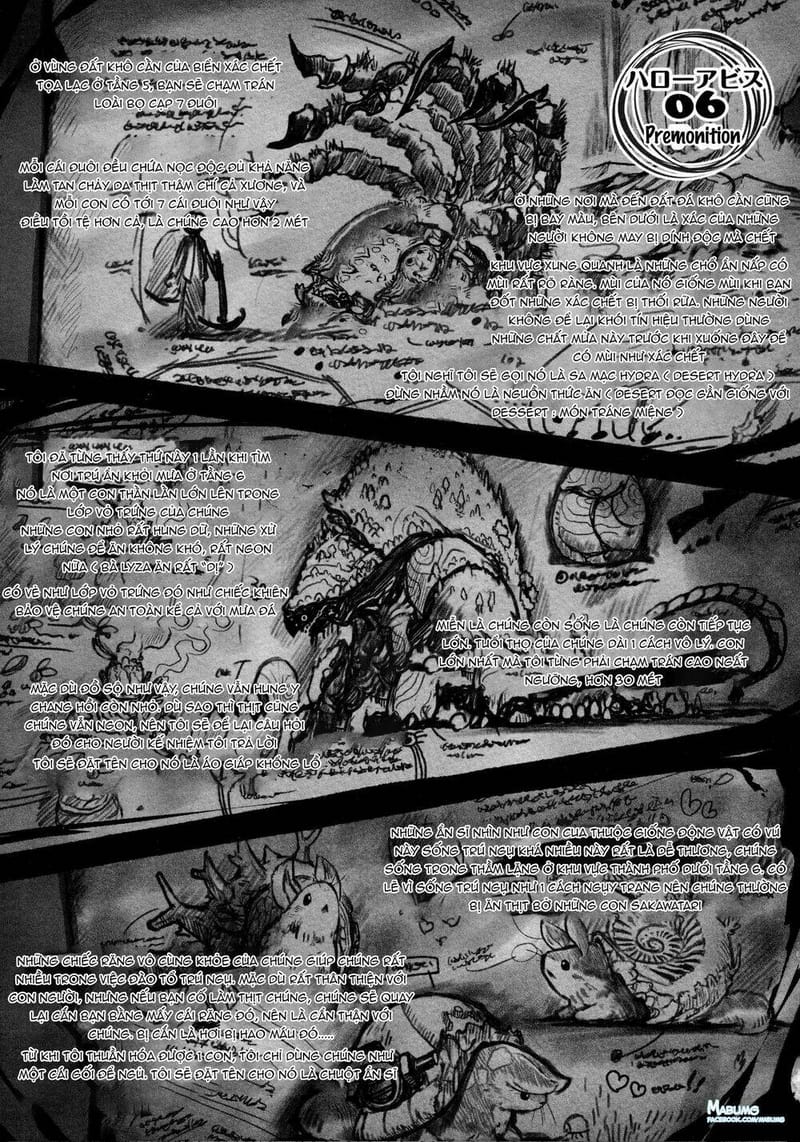 Ở VÙNG ĐẤT KHÔ CẰN CỦA BIỂN XÁC CHẾT
TỌA LẠC Ở TẦNG 5, BẠN SẼ CHẠM TRÁN
LOÀI BỌ CẠP 7 ĐUÔI
ハローアビス
06
Premonition
MỖI CÁI ĐUÔI ĐỀU CHỨA NỌC ĐỘC ĐỦ KHẢ NĂNG
LÀM TAN CHẢY DA THỊT THẬM CHÍ CẢ XƯƠNG, VÀ
MỖI CON CÓ TỚI 7 CÁI ĐUÔI NHƯ VẬY
ĐIỀU TỒI TỆ HƠN CẢ, LÀ CHÚNG CAO HƠN 2 MÉT
Ở NHỮNG NƠI MÀ ĐẾN ĐẤT ĐÁ KHÔ CẰN CŨNG
BỊ BAY MÀU, BÊN DƯỚI LÀ XÁC CỦA NHỮNG
NGƯỜI KHÔNG MAY BỊ DÍNH ĐỘC MÀ CHẾT
KHU VỰC XUNG QUANH LÀ NHỮNG CHỖ ẨN NẤP CÓ
MÙI RẤT RÕ RÀNG. MÙI CỦA NÓ GIỐNG MÙI KHI BẠN
ĐỐT NHỮNG XÁC CHẾT BỊ THỐI RỮA. NHỮNG NGƯỜI
KHÔNG ĐỂ LẠI KHÓI TÍN HIỆU THƯỜNG DÙNG
NHỮNG CHẤT MÙA NÀY TRƯỚC KHI XUỐNG ĐÂY ĐỂ
CÓ MÙI NHƯ XÁC CHẾT.
TÔI NGHĨ TÔI SẼ GỌI NÓ LÀ SA MẠC HYDRA ( DESERT HYDRA )
ĐỪNG NHẦM NÓ LÀ NGUỒN THỨC ĂN ( DESERT ĐỌC GẦN GIỐNG VỚI
DESSERT : MÓN TRÁNG MIỆNG )
TÔI ĐÃ TỪNG THẤY THỨ NÀY 1 LẦN KHI TÌM
NƠI TRÚ ẨN KHỎI MƯA Ở TẦNG 6
NÓ LÀ MỘT CON THẰN LẰN LỚN LÊN TRONG
LỚP VỎ TRỨNG CỦA CHÚNG
NHỮNG CON NHỎ RẤT HUNG DỮ, NHỮNG XỬ
LÝ CHÚNG ĐỂ ĂN KHÔNG KHÓ, RẤT NGON
NỮA ( BÀ LYZA ĂN RẤT "DỊ" )
CÓ VẺ NHƯ LỚP VỎ TRỨNG ĐÓ NHƯ CHIẾC KHIÊN
BẢO VỆ CHÚNG AN TOÀN KỂ CẢ VỚI MƯA ĐÁ
MIỄN LÀ CHÚNG CÒN SỐNG LÀ CHÚNG CÒN TIẾP TỤC
LỚN. TUỔI THỌ CỦA CHÚNG DÀI 1 CÁCH VÔ LÝ. CON
LỚN NHẤT MÀ TÔI TỪNG PHẢI CHẠM TRÁN CAO NGẤT
NGƯỞNG, HƠN 30 MÉT
MẶC DÙ ĐỒ SỘ NHƯ VẬY, CHÚNG VẪN HUNG Y
CHANG HỒI CÒN NHỎ. DÙ SAO THÌ THỊT CŨNG
CHÚNG VẪN NGON, NÊN TÔI SẼ ĐỂ LẠI CÂU HỎI
ĐÓ CHO NGƯỜI KẾ NHIỆM TÔI TRẢ LỜI
TÔI SẼ ĐẶT TÊN CHO NÓ LÀ ÁO GIÁP KHỔNG LỒ
NHỮNG ẨN SĨ NHÌN NHƯ CON CUA THUỘC GIỐNG ĐỘNG VẬT CÓ VÚ
NÀY SỐNG TRÚ NGỤ KHÁ NHIỀU NÀY RẤT LÀ DỄ THƯƠNG, CHÚNG
SỐNG TRONG THẦM LẶNG Ở KHU VỰC THÀNH PHỐ DƯỚI TẦNG 6. CÓ
LẼ VÌ SỐNG TRÚ NGỤ NHƯ 1 CÁCH NGỤY TRANG NÊN CHÚNG THƯỜNG
BỊ ĂN THỊT BỞ NHỮNG CON SAKAWATARI
NHỮNG CHIẾC RĂNG VÔ CÙNG KHỎE CỦA CHÚNG GIÚP CHÚNG RẤT
NHIỀU TRONG VIỆC ĐÀO TỔ TRÚ NGỤ. MẶC DÙ RẤT THÂN THIỆN VỚI
CON NGƯỜI, NHƯNG NẾU BẠN CỐ LÀM THỊT CHÚNG, CHÚNG SẼ QUAY
LẠI CẮN BẠN BẰNG MẤY CÁI RĂNG ĐÓ, NÊN LÀ CẨN THẬN VỚI
CHÚNG. BỊ CẮN LÀ HƠI BỊ HAO MÁU ĐÓ.....
TỪ KHI TÔI THUẦN HÓA ĐƯỢC 1 CON, TÔI CHỈ DÙNG CHÚNG NHƯ
MỘT CÁI GỐI ĐỂ NGỦ. TÔI SẼ ĐẶT TÊN CHO NÓ LÀ CHUỘT ẨN SĨ
MABUMG
FACEBOOK.COM/MABUMG